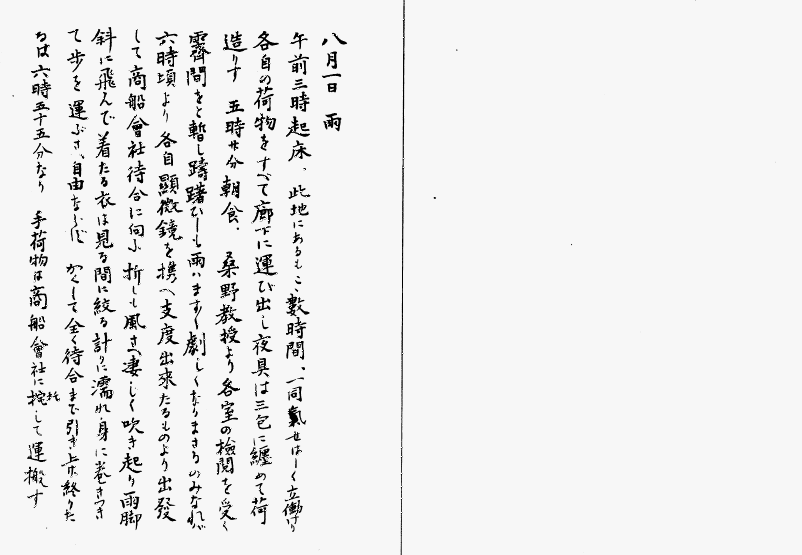 八月一日　雨
午前三時起床、此地にあるもこゝ數時間、一同氣せはしく立働けり
各自の荷物をすべて廊下に運び出し夜具は三包に纏めて荷
造りす　五時廿分朝食、　桑野教授より各室の檢閲を受く
霽間をと暫し躊躇ひしも雨はます〱劇しくなりまさるのみなれば
六時頃より各自顯微鏡を携へ支度出來たるものより出發
して商船會社待合に向ふ　折しも風さへ凄じく吹き起り雨脚
斜に飛んで着たる衣は見る間に絞る計りに濡れ身に巻きつき
て歩を運ぶさへ自由ならず　かくして全く待合まで引き上げ終りた
るは六時五十五分なり　手荷物は商船會社に托して運搬す